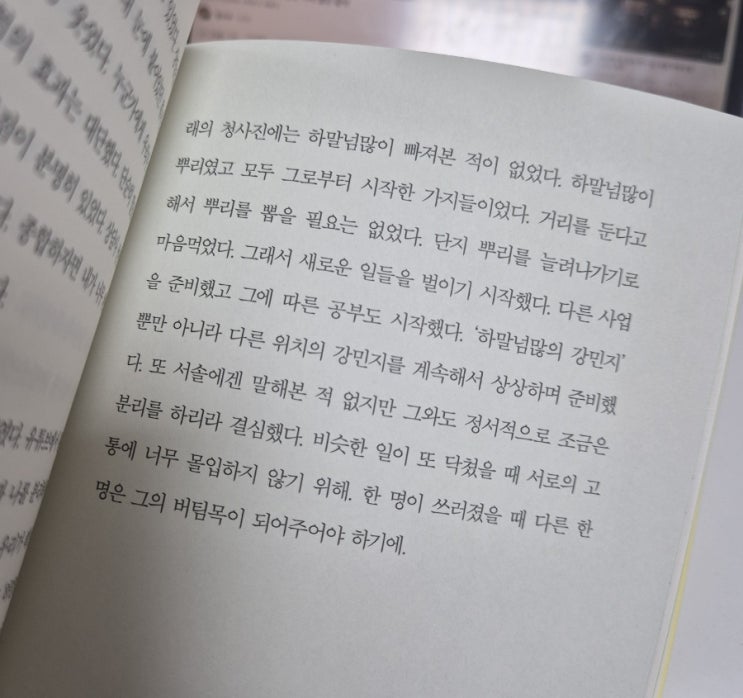 래의 청사진에는 하말넘많이 빠져본 적이 없었다. 하말넘많이
뿌리였고 모두 그로부터 시작한 가지들이었다. 거리를 둔다고
해서 뿌리를 뽑을 필요는 없었다. 단지 뿌리를 늘려나가기로
마음먹었다. 그래서 새로운 일들을 벌이기 시작했다. 다른 사업
을 준비했고 그에 따른 공부도 시작했다. ‘하말넘많의 강민지’
뿐만 아니라 다른 위치의 강민지를 계속해서 상상하며 준비했
다. 또 서솔에겐 말해본 적 없지만 그와도 정서적으로 조금은
분리를 하리라 결심했다. 비슷한 일이 또 닥쳤을 때 서로의 고
통에 너무 몰입하지 않기 위해. 한 명이 쓰러졌을 때 다른 한
명은 그의 버팀목이 되어주어야 하기에.